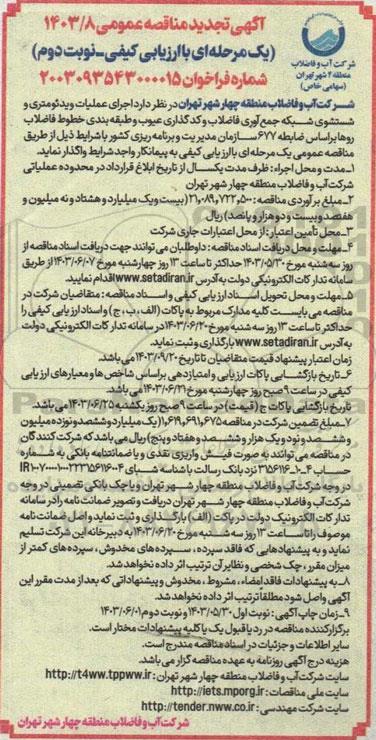 آگهی تجدید مناقصه عمومی ۱۴۰۳/۸
(یک مرحله‌ای با ارزیابی کیفی-نوبت دوم)
شماره فراخوان ۲۰۰۳۰۹۳۵۴۳۰۰۰۰۱۵
شرکت آب و فاضلاب
منطقه ۴ شهر تهران
(سهامی خاص)
شرکت آب و فاضلاب منطقه چهار شهر تهران در نظر دارد اجرای عملیات ویدئومتری و
شستشوی شبکه جمع آوری فاضلاب و کدگذاری عیوب و طبقه بندی خطوط فاضلاب
روها براساس ضابطه ۶۷۷ سازمان مدیریت و برنامه ریزی کشور با شرایط ذیل از طریق
مناقصه عمومی یک مرحله ای با ارزیابی کیفی به پیمانکار واجد شرایط واگذار نماید.
۱-مدت و محل اجراء: ظرف مدت یکسال از تاریخ ابلاغ قرارداد در محدوده عملیاتی
شرکت آب و فاضلاب منطقه چهار شهر تهران
۲-مبلغ برآوردی مناقصه: ۲۱,۰۸۹,۷۲۲,۵۰۰ (بیست و یک میلیارد و هشتاد و نه میلیون و
هفتصد و بیست و دو هزار و پانصد) ریال
۳-محل تأمین اعتبار: از محل اعتبارات جاری شرکت
۴-مهلت و محل دریافت اسناد مناقصه: داوطلبان می توانند جهت دریافت اسناد مناقصه از
روز سه شنبه مورخ ۱۴۰۳/۰۵/۳۰ حداکثر تا ساعت ۱۳ روز چهارشنبه مورخ ۱۴۰۳/۰۶/۰۷ از طریق
سامانه تدارکات الکترونیکی دولت به آدرس www.setadiran.ir اقدام نمایید.
۵-مهلت و محل تحویل اسناد ارزیابی کیفی و اسناد مناقصه: متقاضیان شرکت در
مناقصه می بایست کلیه مدارک مربوط به پاکات (الف، ب، ج) و اسناد ارزیابی کیفی را
حداکثر تا ساعت ۱۳ روز سه شنبه مورخ ۱۴۰۳/۰۶/۲۰ در سامانه تدارکات الکترونیکی دولت
به آدرس www.setadiran.ir بارگذاری و ثبت نماید.
زمان اعتبار پیشنهاد قیمت متقاضیان تا تاریخ ۱۴۰۳/۰۹/۲۰ می باشد.
۶-تاریخ بازگشایی پاکات ارزیابی و امتیازدهی براساس شاخص ها و معیارهای ارزیابی
کیفی در ساعت ۹ صبح روز چهارشنبه مورخ ۱۴۰۳/۰۶/۲۱ می باشد.
تاریخ بازگشایی پاکات ج (قیمت) در ساعت ۹ صبح روز یکشنبه ۱۴۰۳/۰۶/۲۵ می باشد.
۷-مبلغ تضمین شرکت در مناقصه ۱,۶۱۹,۶۹۱,۶۷۵ (یک میلیارد و ششصد و نوزده میلیون
و ششصد و نود و یک هزار و ششصد و هفتاد و پنج) ریال می باشد که شرکت کنندگان
در مناقصه می توانند به صورت فیش واریزی نقدی و یا ضمانتنامه بانکی به شماره
حساب ۳۱۵۶۱۱۶-۱۰-۴ نزد بانک رسالت با شناسه شبای
در وجه شرکت آب و فاضلاب منطقه چهار شهر تهران و یا چک بانکی تضمینی در وجه
شرکت آب و فاضلاب منطقه چهار شهر تهران دریافت و تصویر ضمانت نامه را در سامانه
تدارکات الکترونیک دولت در پاکت (الف) بارگذاری و ثبت نماید و اصل ضمانت نامه
موصوف را تا ساعت ۱۳ روز سه شنبه مورخ ۱۴۰۳/۰۶/۲۰ به دبیرخانه این شرکت تسلیم
نماید و به پیشنهادهایی که فاقد سپرده، سپرده های مخدوش، سپرده های کمتر از
میزان مقرر، چک شخصی و نظایر آن ترتیب اثر داده نخواهد شد.
۸-به پیشنهادات فاقد امضاء، مشروط، مخدوش و پیشنهاداتی که بعد از مدت مقرر این
آگهی واصل شود مطلقاً ترتیب اثر داده نخواهد شد.
۹-زمان چاپ آگهی: نوبت اول ۱۴۰۳/۰۵/۳۰ و نوبت دوم ۱۴۰۳/۰۶/۰۱
برگزارکننده مناقصه در رد یا قبول یک یا کلیه پیشنهادات مختار است.
سایر اطلاعات و جزئیات در اسناد مناقصه مندرج است.
هزینه درج آگهی روزنامه به عهده مناقصه گزار می باشد.
سایت شرکت آب و فاضلاب منطقه چهار شهر تهران: http://t4ww.tppww.ir
سایت ملی مناقصات: http://iets.mporg.ir
سایت شرکت مهندسی: http://tender.nww.co.ir
شرکت آب و فاضلاب منطقه چهار شهر تهران